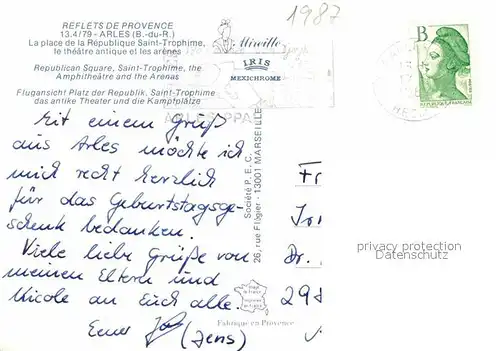 1987
REFLETS DE PROVENCE
13.4/79 - ARLES (B.-du-R.)
La place de la République Saint-Trophime,
le théâtre antique et les arènes
Republican Square, Saint-Trophime, the
Amphitheâtre and the Arenas
Flugansicht Platz der Republik, Saint-Trophime
das antike Theater und die Kampfplätze
Mireille
IRIS
MEXICHROME
B
REPUBLIQUE FRANÇAISE
ARLES
Mit einem Gruß
aus Arles möchte ich
mich recht herzlich
für das Geburtstagsge-
schenk bedanken.
Viele liebe Grüße von
meinen Eltern und
Nicole an Euch alle.
Euer
(Jens)
Société P.E.C.
26, rue Fligier - 13001 MARSEILLE
Fr
Dr.
298
privacy protection
Datenschutz
Fabriqué en Provence